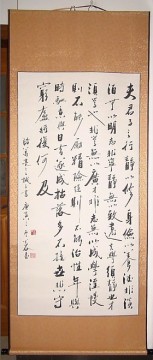 夫君子之行靜以修身儉以養德非淡
泊無以明志非寧靜無以致遠夫學須靜也才
須學也非學無以廣才非志無以成學淫慢
則不能勵精險躁則不能治性年與
時馳意與日去遂成枯落多不接世悲守
窮廬將復何及
諸葛亮誡子書